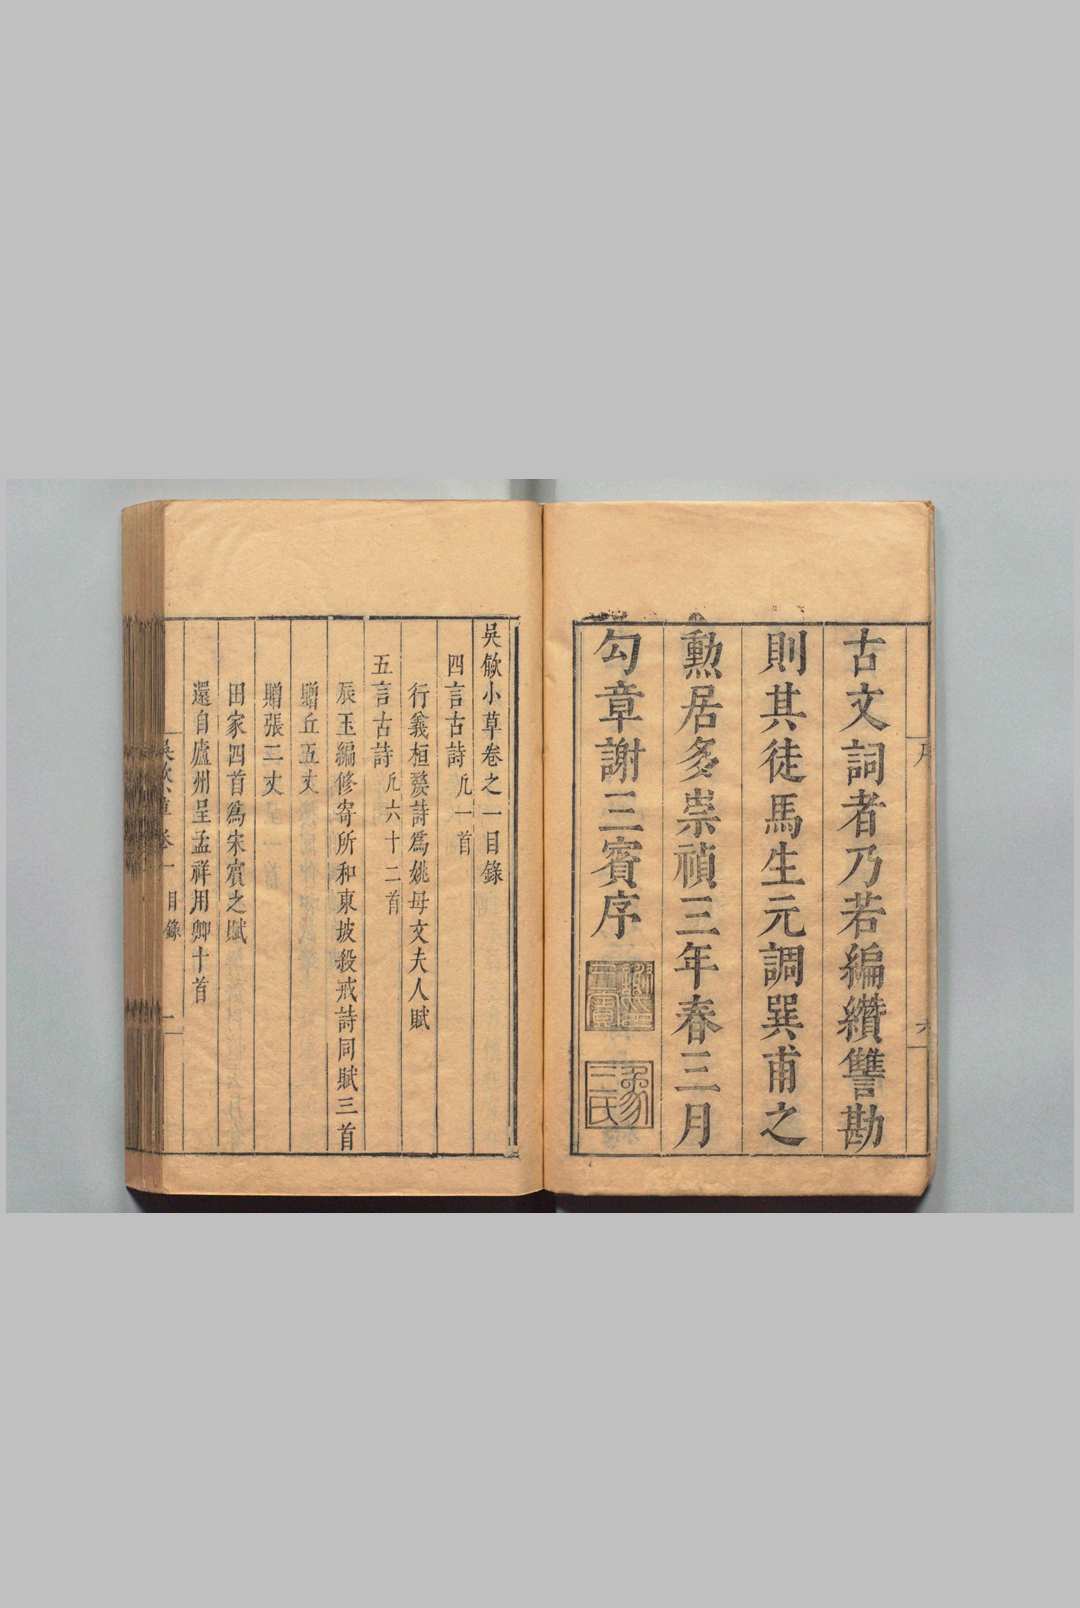 古文詞者乃若編纘讐勘
則其徒馬生元調巽甫之
勲居多崇禎三年春三月
勾章謝三賓序
吳歈小草卷之一目錄
四言古詩凡一首
行義桓嫠詩爲姚母文夫人賦
五言古詩凡六十二首
辰玉編修寄所和東坡殺戒詩同賦三首
贈丘五丈
贈張二丈
田家四首爲宋賓之賦
還自廬州呈孟祥用卿十首
目錄